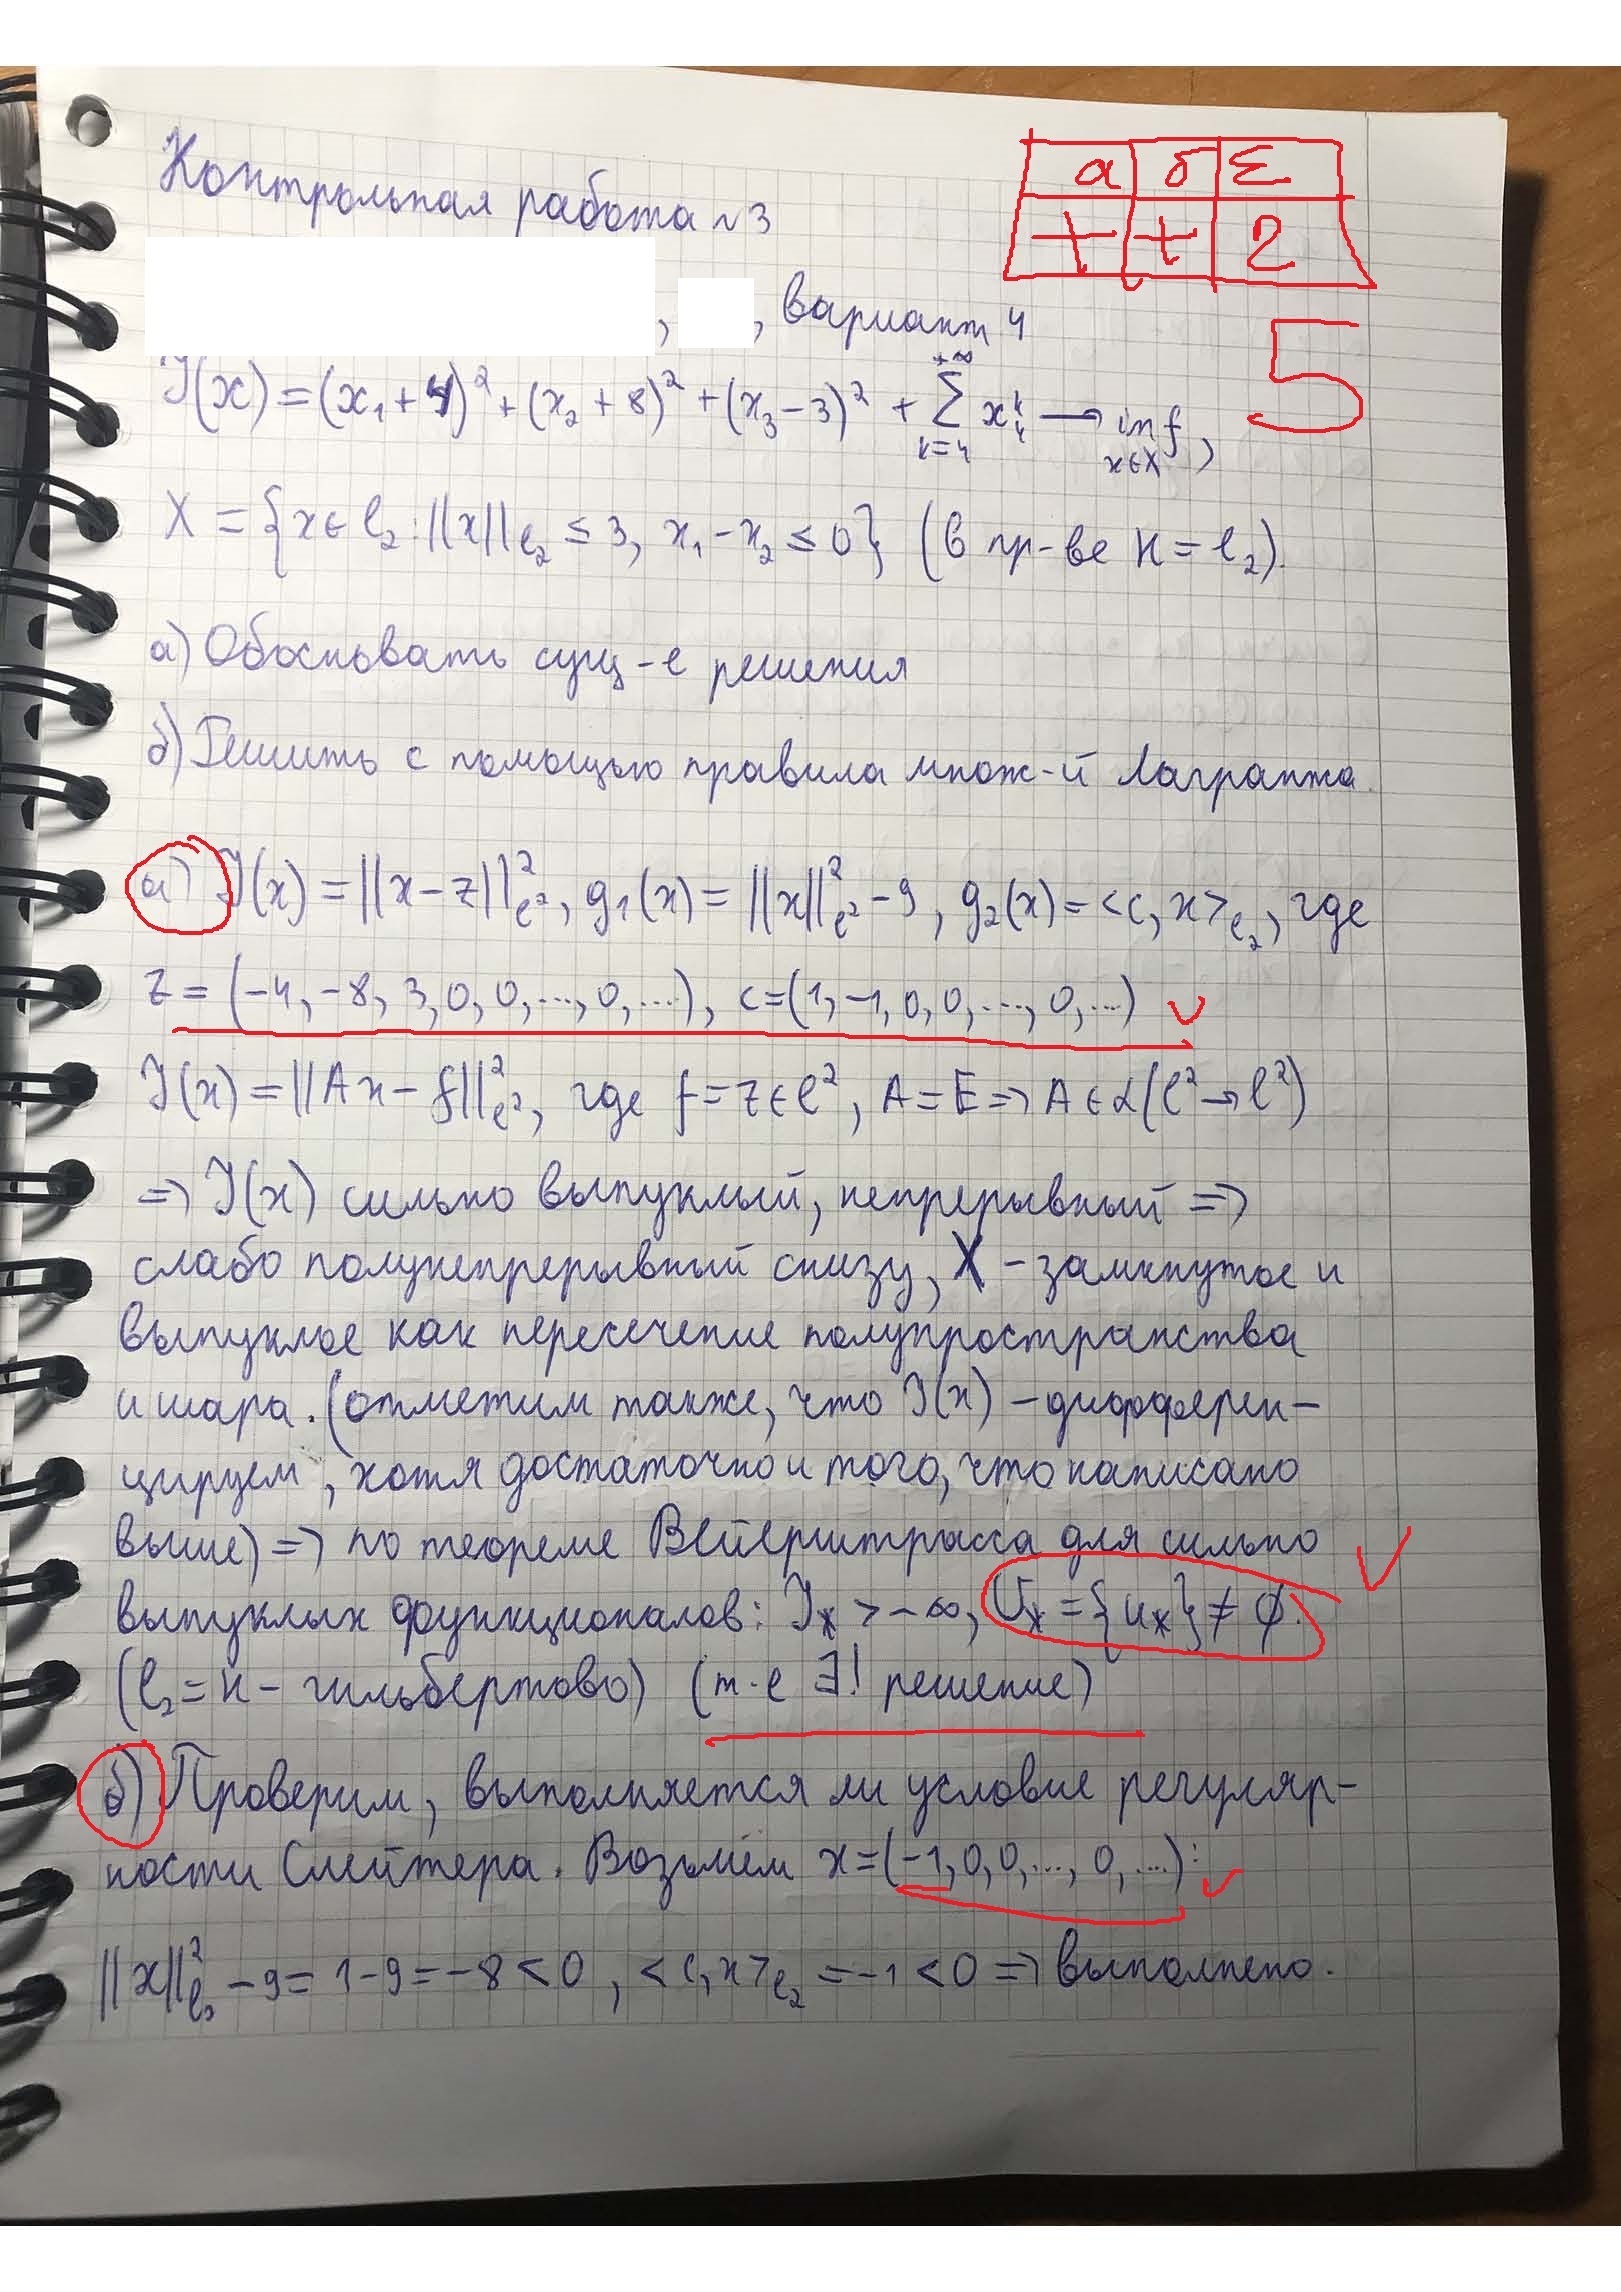 Контрольная работа №3
а б Σ
+ + 2
, , вариант 4
5
J(x) = (x₁+4)² + (x₂+8)² + (x₃-3)² + \sum_{k=4}^{+∞} x_4^k → inf_{x∈X},
X = {x∈l₂: ||x||_{l₂} ≤ 3, x₁-x₂ ≤ 0} (в пр-ве H = l₂).
а) Обосновать сущ-е решения
б) Решить с помощью правила множ-й Лагранжа
а) J(x) = ||x-z||²_{l²}, g₁(x) = ||x||²_{l²} - 9, g₂(x) = <c, x>_{l₂}, где
z = (-4, -8, 3, 0, 0, ..., 0, ...), c = (1, -1, 0, 0, ..., 0, ...)
J(x) = ||Ax - f||²_{l²}, где f = z ∈ l², A = E => A ∈ L(l² → l²)
=> J(x) сильно выпуклый, непрерывный =>
слабо полунепрерывный снизу, X - замкнутое и
выпуклое как пересечение полупространства
и шара. (отметим также, что J(x) - дифферен-
цируем, хотя достаточно и того, что написано
выше) => по теореме Вейерштрасса для сильно
выпуклых функционалов: J_* > -∞, U_* = {u_*} ≠ ∅.
(l₂ = H - гильбертово) (т.е ∃! решение)
б) Проверим, выполняется ли условие регуляр-
ности Слейтера. Возьмём x = (-1, 0, 0, ..., 0, ...):
||x||²_{l₂} - 9 = 1 - 9 = -8 < 0, <c, x>_{l₂} = -1 < 0 => выполнено.